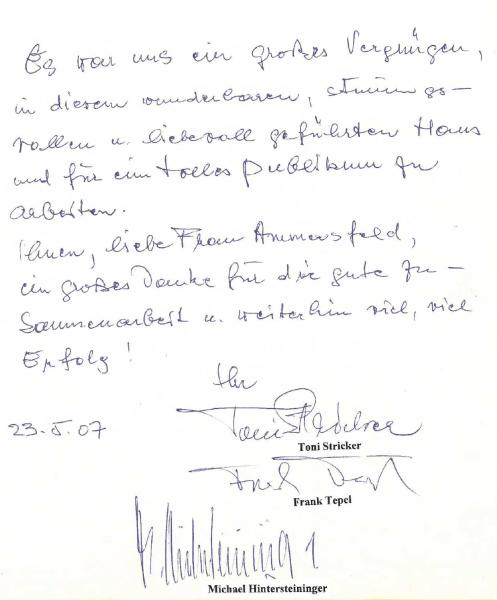 Es war uns ein großes Vergnügen,
in diesem wunderbaren, stimmungs-
vollen u. liebevoll geführten Haus
und für ein tolles Publikum zu
arbeiten.
Ihnen, liebe Frau Ammersfeld,
ein großes Danke für die gute Zu-
sammenarbeit u. weiterhin viel, viel
Erfolg!
Ihr
23.5.07
Toni Stricker
Frank Tepel
Michael Hintersteininger